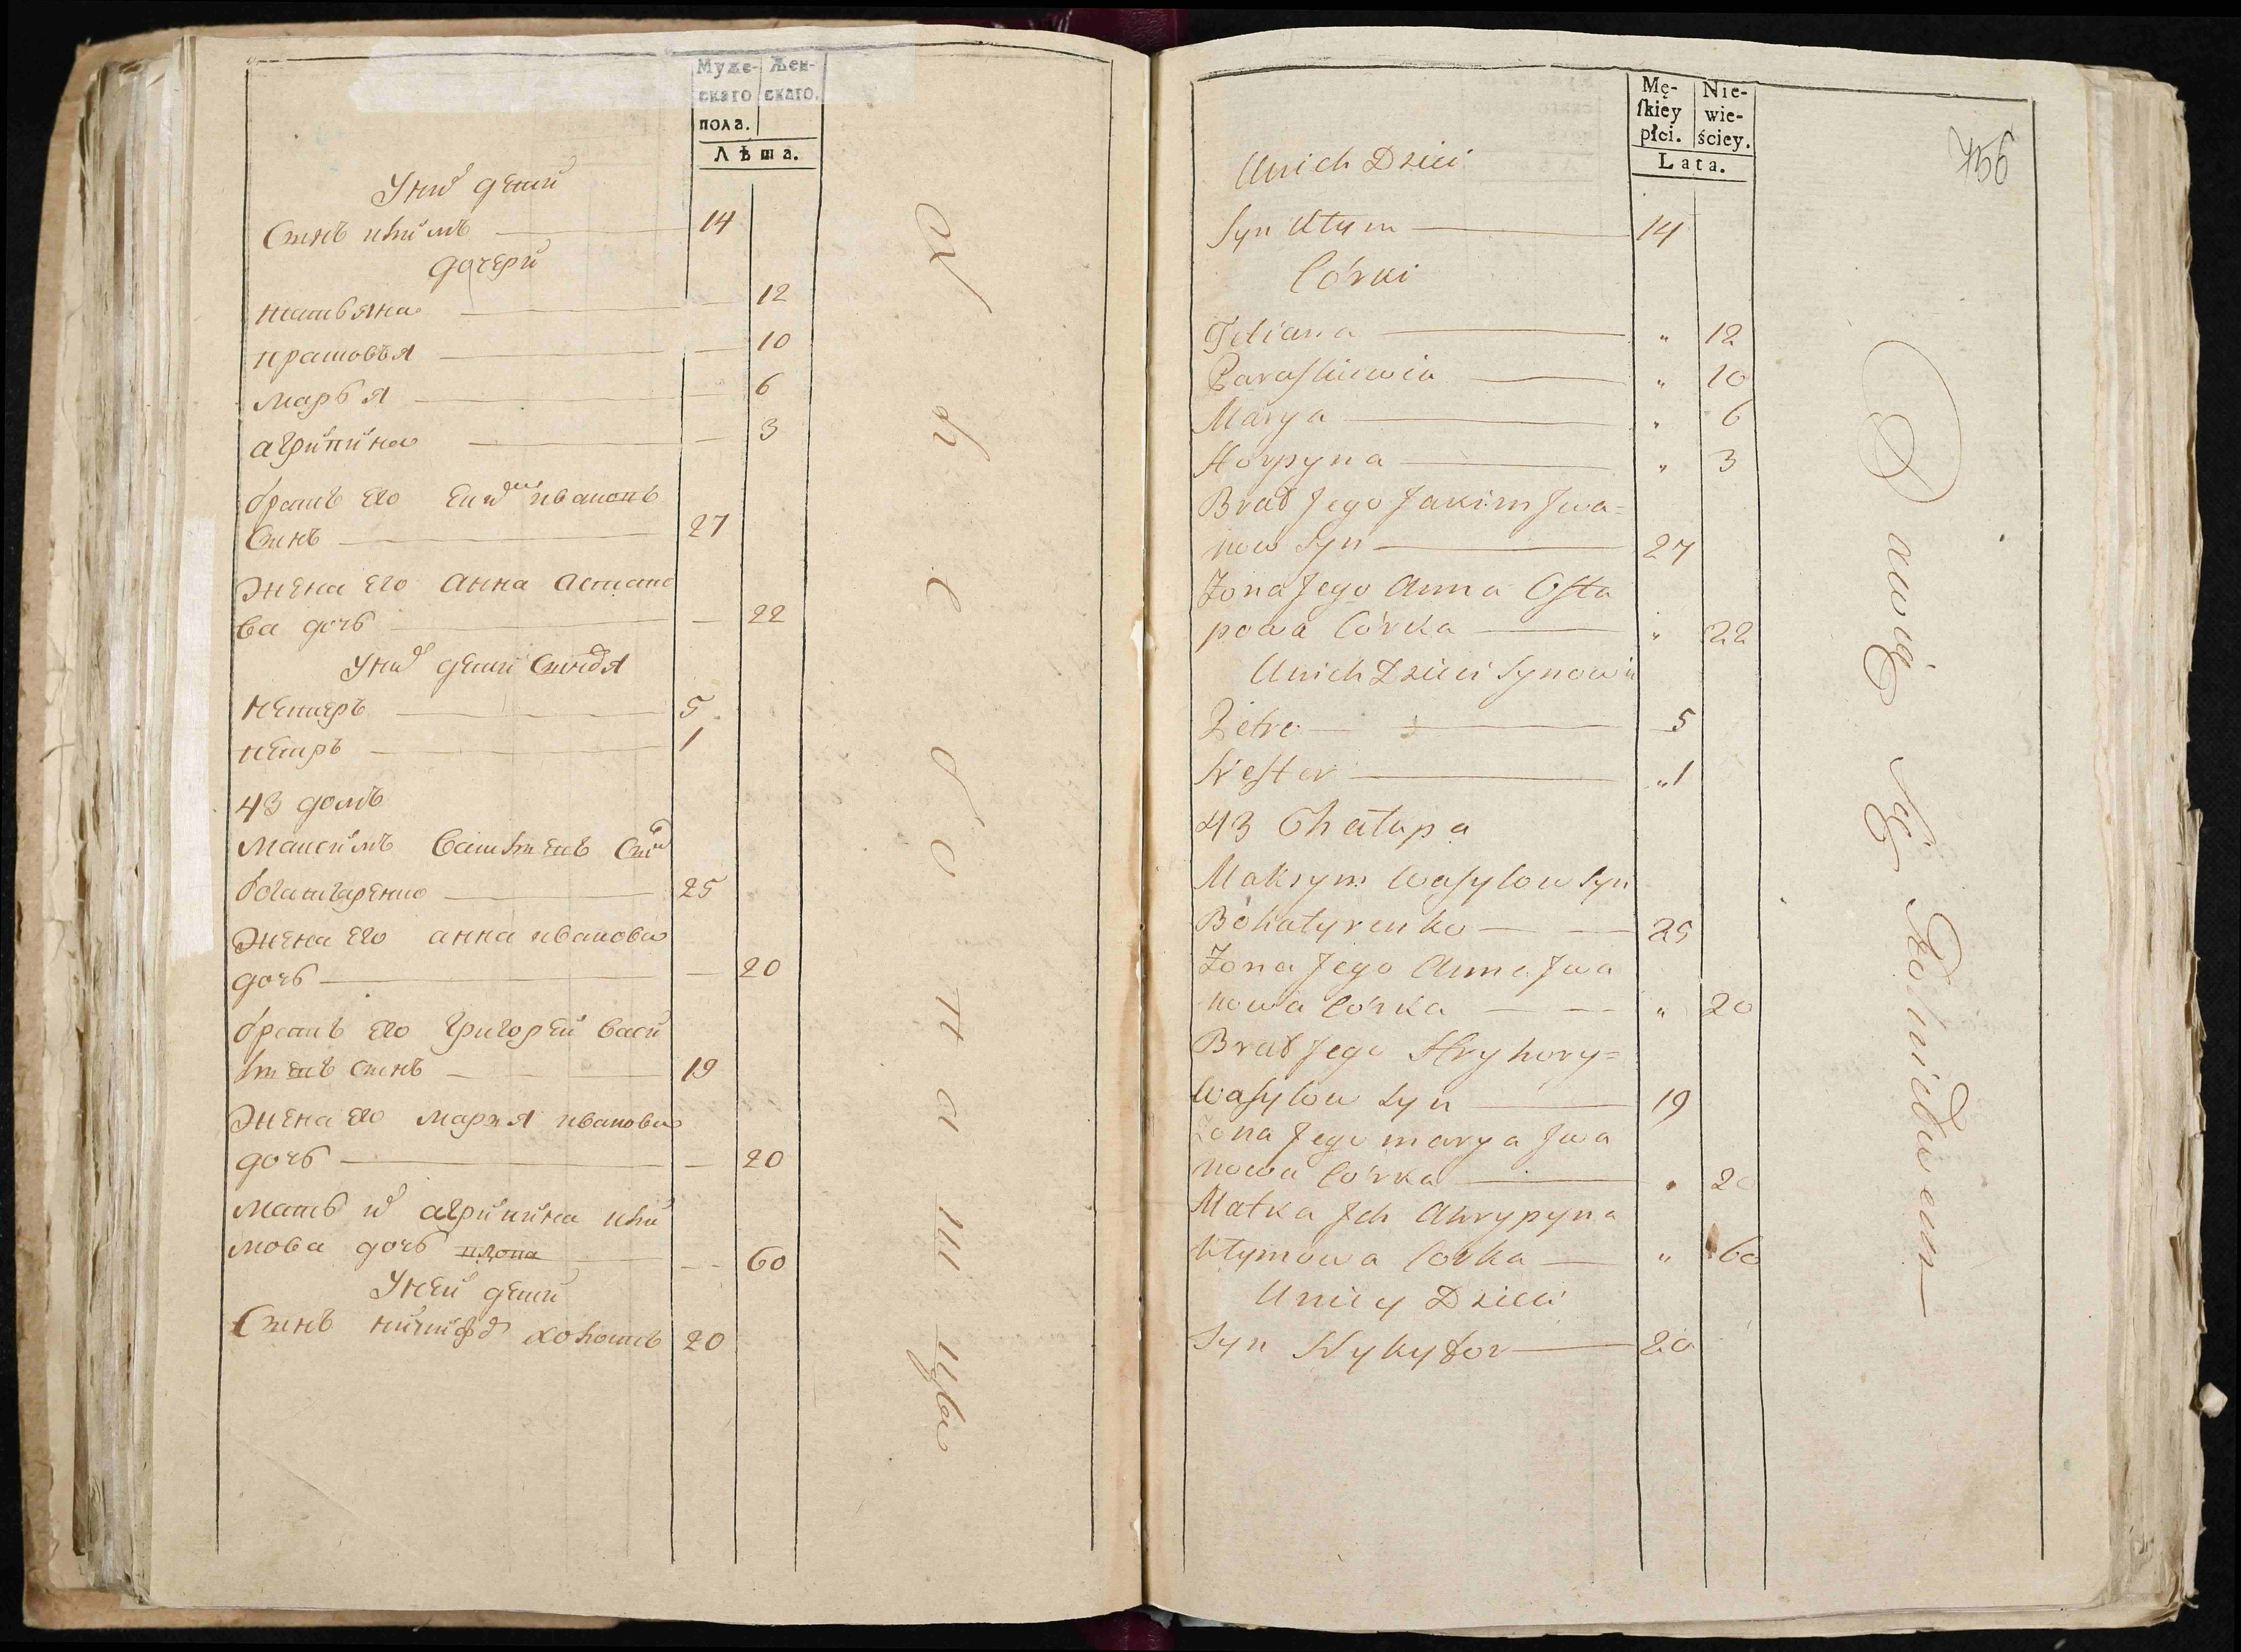 Муже- Жен-
скаго скаго.
пола.
Лѣта.
У них дети
Синъ юхимъ 14
дочери
татьяна 12
парасковья 10
марья 6
агрипина 3
братъ его Еким ивановъ
Синъ 27
Жена его Анна Астапо
ва дочь 22
У них дети Синовья
Нестеръ 5
петръ 1
43 домъ
Максимъ Василевъ Син
богатиренко 25
Жена его анна иванова
дочь 20
братъ его Григорей Васи
левъ Синъ 19
Жена его марья иванова
дочь 20
мать их агрипина юхи
мова дочь 60
У ней дети
Синъ никифор холостъ 20
Mę- Nie-
ſkiey wie-
płci. ściey.
Lata.
756
Unich Dzieci
Syn Utym 14
Córki
Tetiana " 12
Paraſkiewia " 10
Marya " 6
Horpyna " 3
Brat Jego Jakim Jwa=
now Syn 27
Żona Jego Anna Oſta
powa Córka " 22
Unich Dzieci Synowie
Petro 5
Neſter " 1
43 Chałupa
Maksym Waſylow Syn
Bohatyrenko 25
Żona Jego Anna Jwa
nowa Córka " 20
Brat Jego Hryhory=
Waſylow Syn 19
Żona Jego marya Jwa
nowa Córka " 20
Matka Jch Ahrypyna
Utymowa Corka " 60
Uniey Dzieci
Syn Nykyfor 20